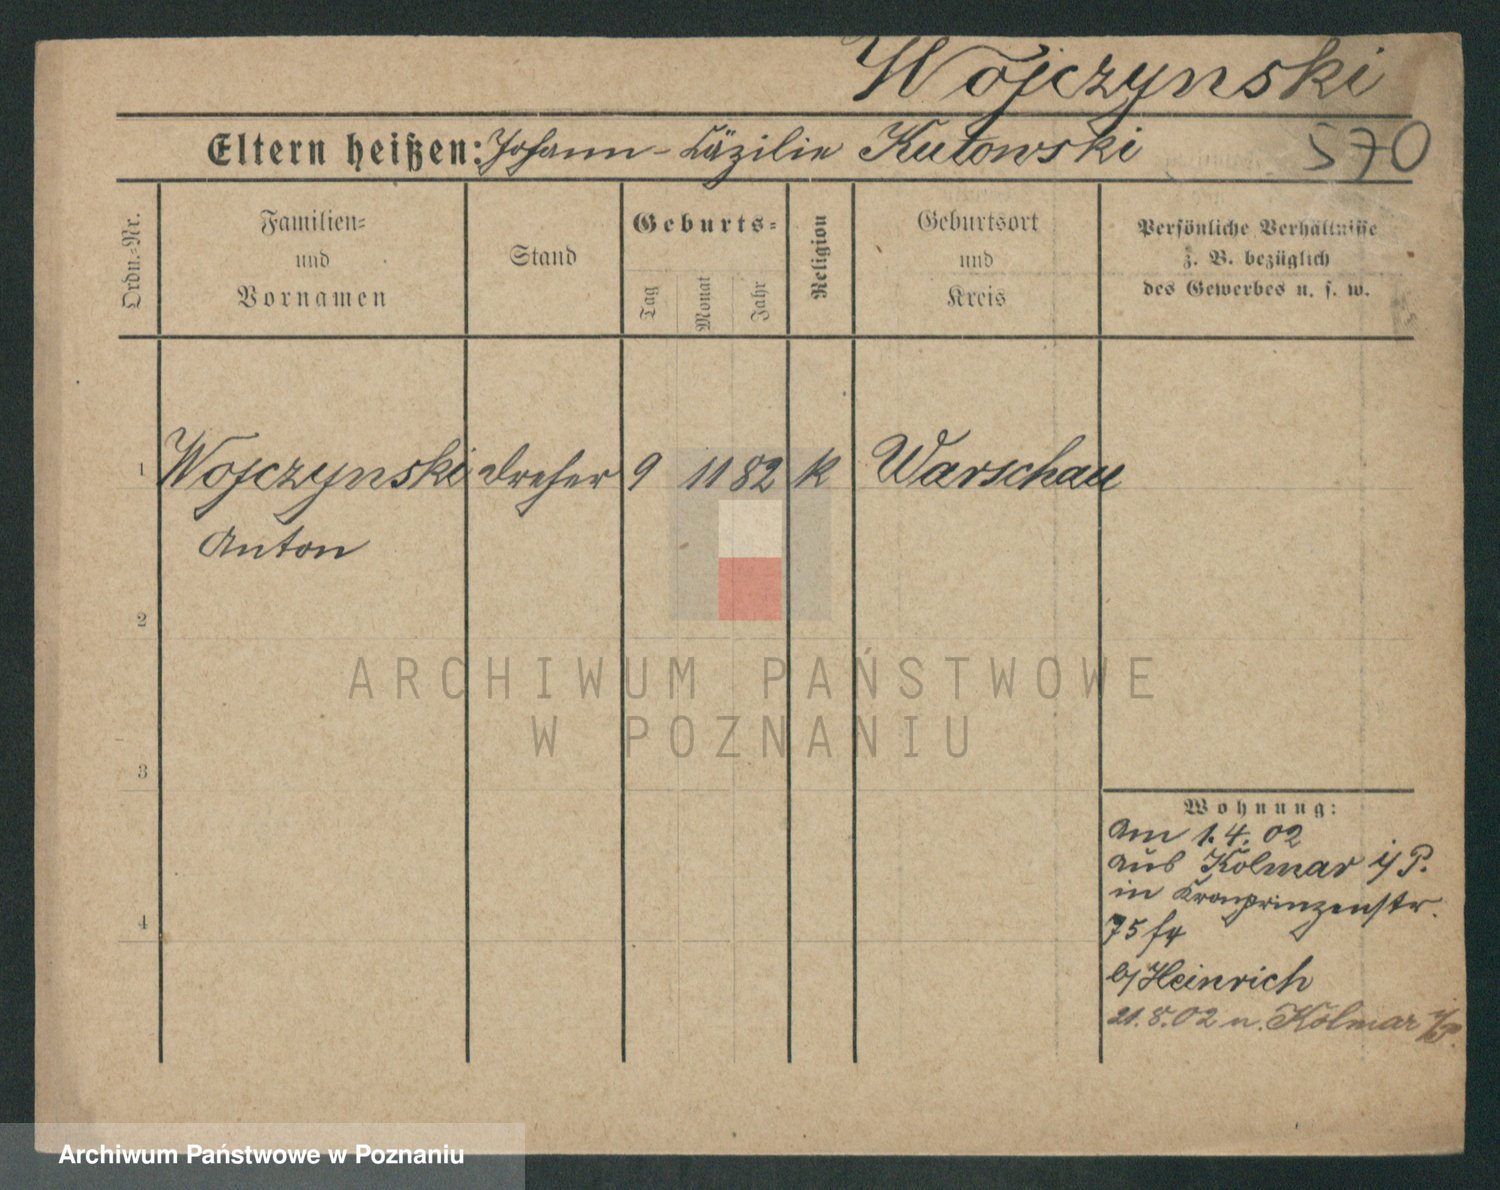 Wojczynski
Eltern heißen: Johann - Cäzilie Kutowski
570
Ordn.=Nr.
Familien=
und
Vornamen
Stand
Geburts=
Tag
Monat
Jahr
Religion
Geburtsort
und
Kreis
Persönliche Verhältnisse
z. B. bezüglich
des Gewerbes u. s. w.
1 Wojczynski Dreher 9 11 82 k Warschau
Anton
2
3
4
Wohnung:
Am 1.4.02
aus Kolmar i/P.
in Kronprinzenstr.
75
b/Heinrich
21.8.02 n. Kolmar i/P.
ARCHIWUM PAŃSTWOWE
W POZNANIU
Archiwum Państwowe w Poznaniu